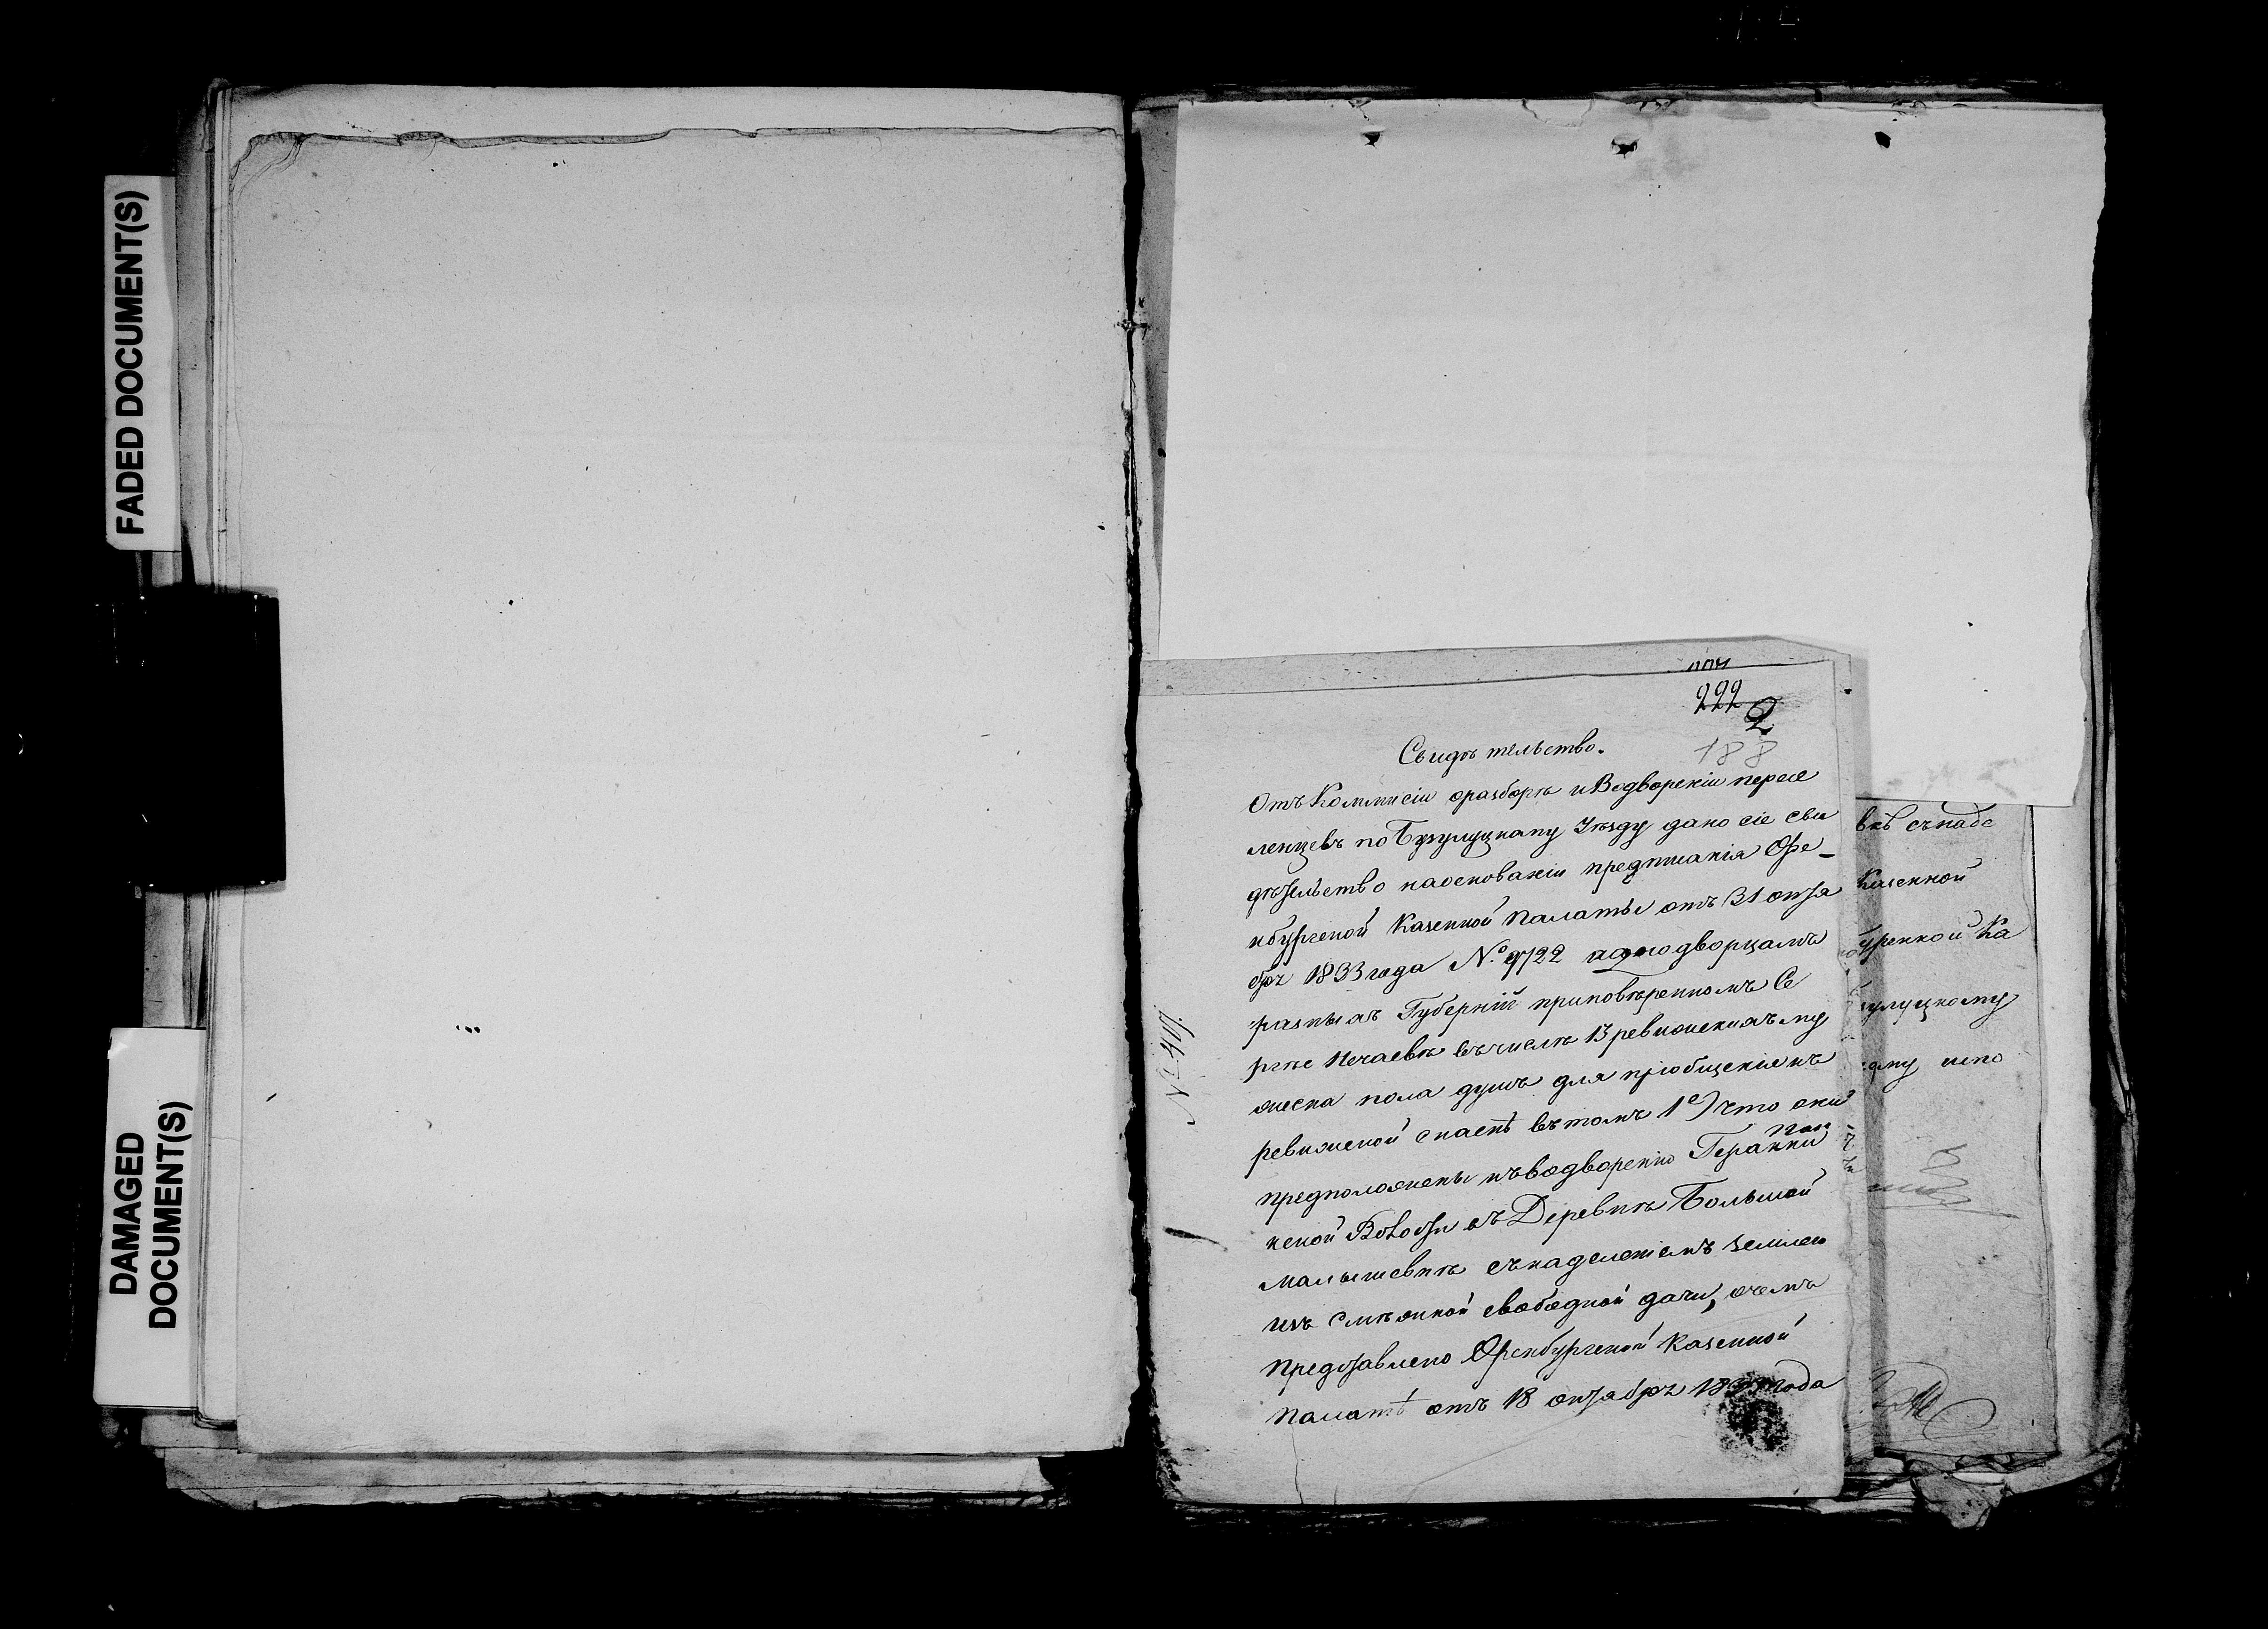 FADED DOCUMENT(S)
DAMAGED
DOCUMENT(S)
222
2
188
Свидѣтельство.
Отъ Коммисіи оразборѣ и Водвореніи пересе
ленцевъ по Бузулуцкому Уѣзду дано сіе сви
дѣтельство наоснованіи предписанія Оре-
нбургской Казенной палаты отъ 31 октя
бря 1833 года №. 9722 аднодворцамъ
разныхъ Губерній приповѣренномъ Се
ргѣе Нечаевѣ въчислѣ 13 ревижскихъ му
жеска пола душъ для пріобщенія къ
ревижской скаскѣ въ томъ 1е) что они
предположены къводворенію Геранки
ской Волости въ Деревнѣ Большой
Малышевкѣ снаделеніемъ землею
изъ смѣжной свободной дачи, очемъ
представлено Оренбургской Казенной
Палатѣ отъ 18 октября года
вкѣ снаде
Казенной
бургской Ка
зулуцкому